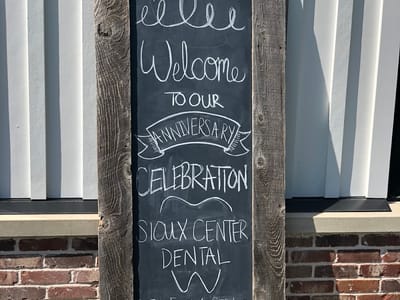 Welcome
TO OUR
ANNIVERSARY
CELEBRATION
SIOUX CENTER
DENTAL